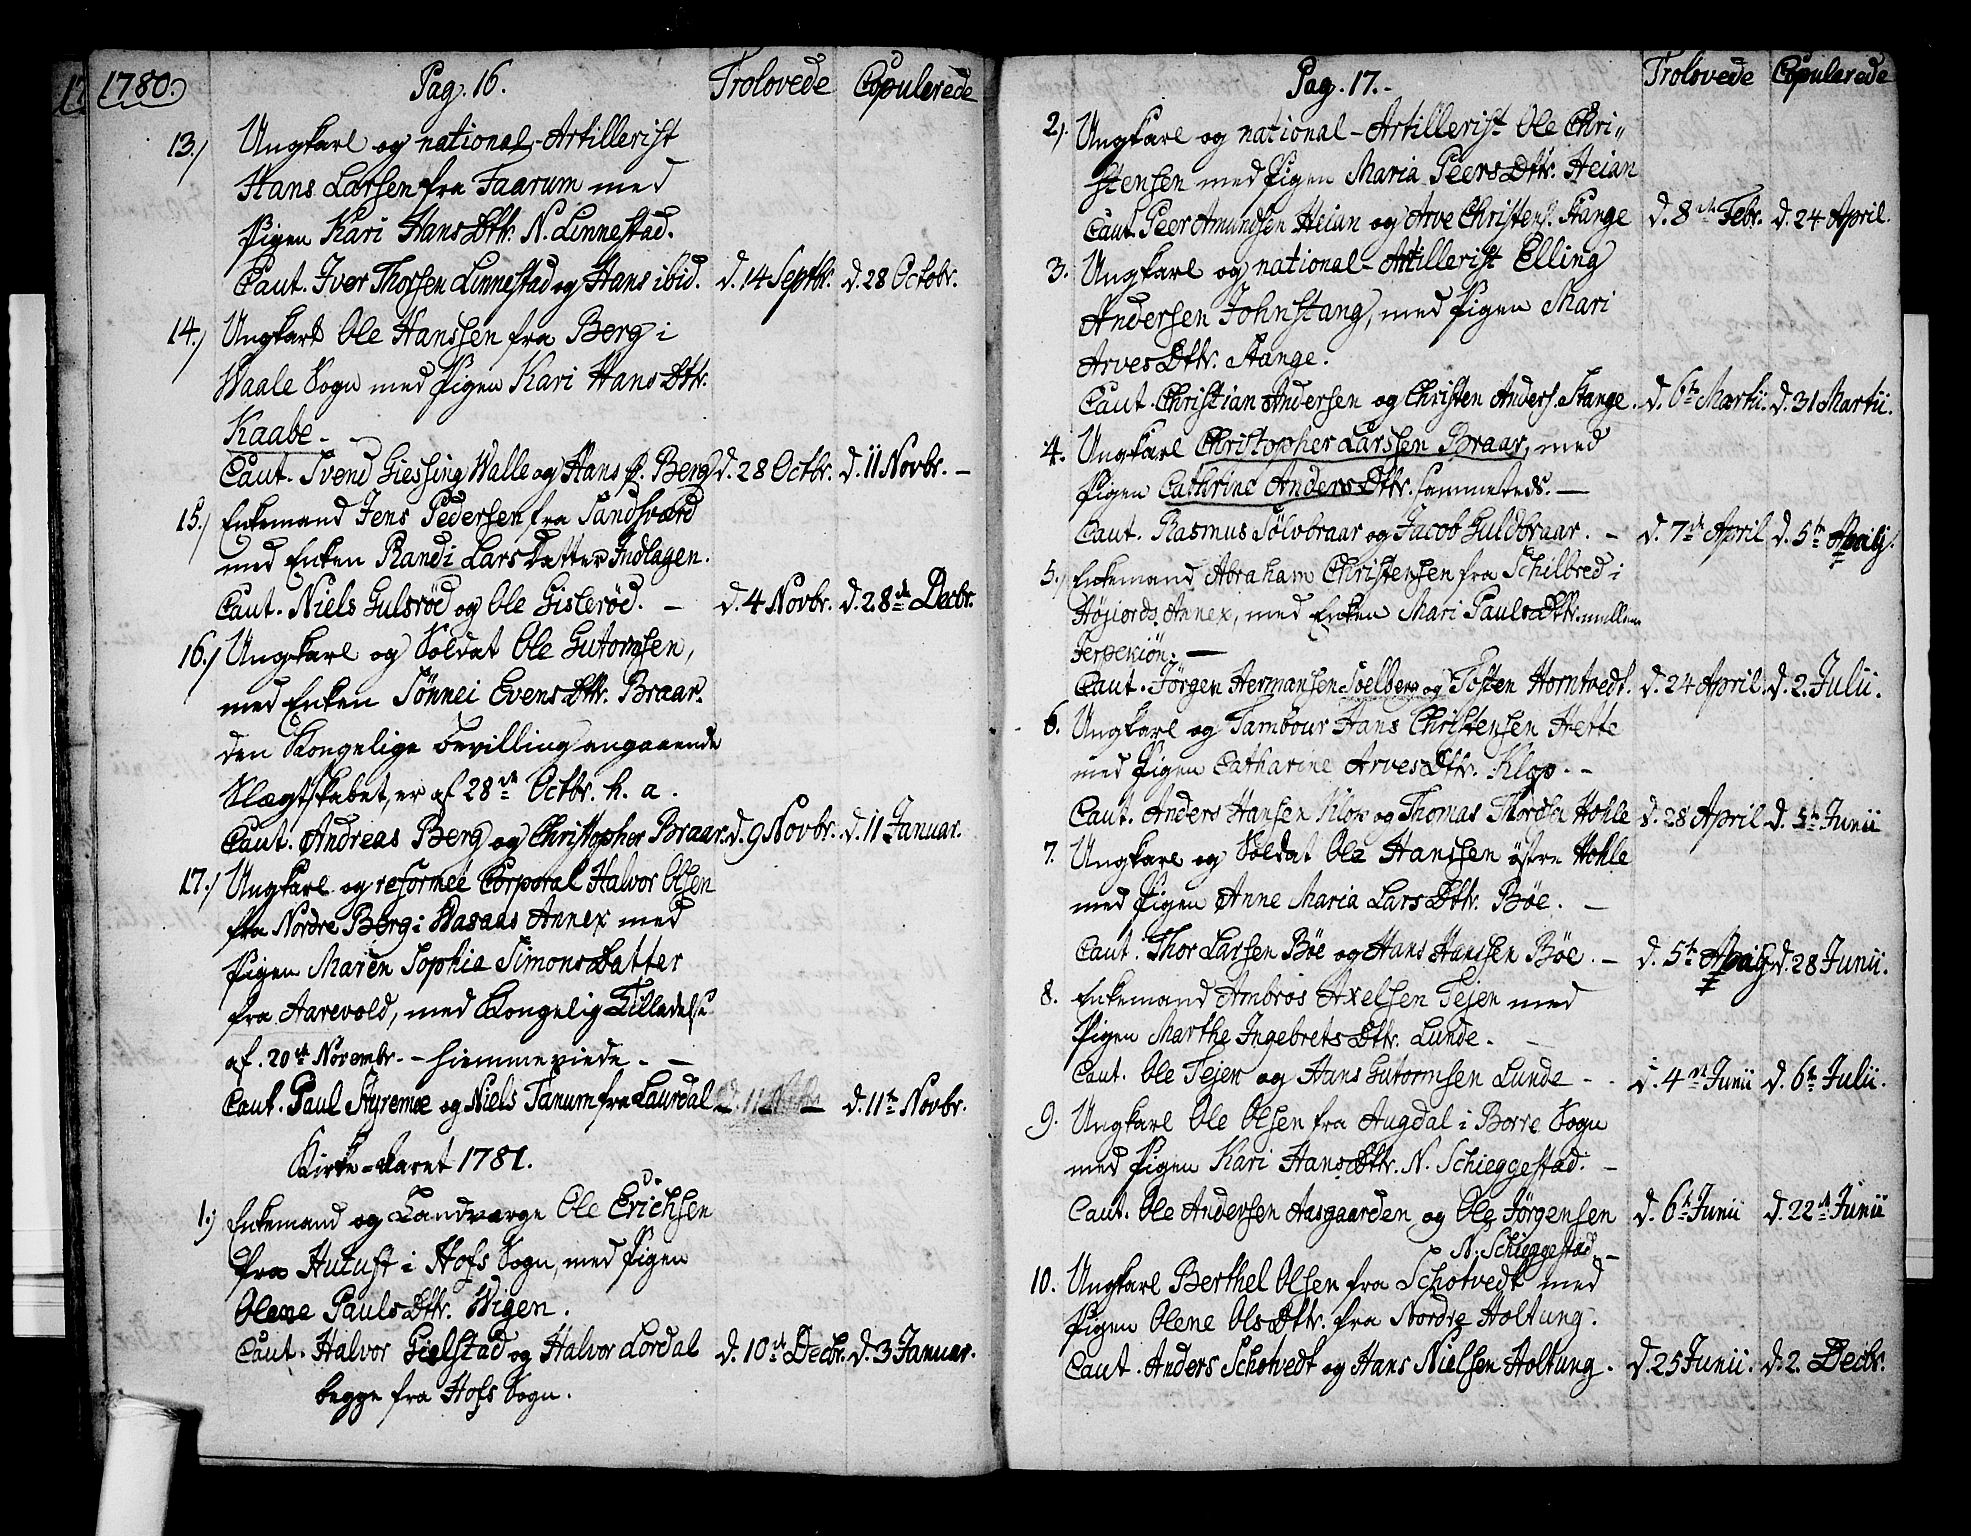 1780.
Pag. 16. Trolovede Copulerede
13.) Ungkarl og national-Artillerist
Hans Larsen fra Faarum med
Pigen Kari HansDttr. N. Linnestad.
Caut. Iver Thorsen Linnestad og Hans ibid. d. 14 Septbr. d. 28 Octobr.
14.) Ungkarl Ole Hanssen fra Berg i
Waale Sogn med Pigen Kari HansDttr.
Kaabe. -
Caut. Svend Giessing Walle og Hans Berg d. 28 Octbr. d. 11 Novbr. -
15.) Enkemand Jens Pedersen fra Sandsværd
med Enken Randi LarsDatter Indlagen.
Caut. Niels Gulsröd og Ole Gisteröd. - d. 4 Novbr. d. 28de Decbr.
16.) Ungkarl og Soldat Ole Gutormsen,
med Enken Tönnei EvensDttr. Braar.
den Kongelige bevilling angaaende
Slægtskabet, er af 28de Octbr. h. a.
Caut. Andreas Berg og Christopher Braar. d. 9 Novbr. d. 11 Januar.
17.) Ungkarl og reformet Corporal Halvor Olsen
fra Nordre Berg i Wasaas Annex med
Pigen Maren Sophia SimonsDatter
fra Aarevold, med Kongelig Tilladelse
af 20de Novembr. - hiemmeviede. -
Caut. Paul Styremoe og Niels Tanum fra Laurdal d. 11 - d. 11te Novbr.
Kirke-Aaret 1781.
1.) Enkemand og Landværge Ole Erichsen
fra Hutuft i Hofs Sogn, med Pigen
Olene PaulsDttr. Wigen.
Caut. Halvor Gielstad og Halvor Lordal d. 10de Decbr. d. 3 Januar.
begge fra Hofs Sogn.
Pag. 17. - Trolovede Copulerede
2). Ungkarl og national-Artillerist Ole Chri-
stensen med Pigen Maria PeersDttr. Heian
Caut. Peer Amundsen Heian og Arve Christens. Stange d. 8de Febr. d. 24 April.
3. Ungkarl og national-Artillerist Elling
Andersen Johnstang, med Pigen Mari
ArvesDttr. Stange.
Caut. Christian Andersen og Christen Anders. Stange. d. 6te Martii. d. 31 Martii.
4. Ungkarl Christopher Larssen Braar, med
Pigen Cathrine AndersDttr. sammeteds. -
Caut. Rasmus Sölvbraar og Jacob Guldbraar. - d. 7de April d. 5te
5.) Enkemand Abraham Christensen fra Schilbred i
Höjiords Annex, med Enken Mari PaulsDttr. mellem
Jerpekiön. -
Caut. Jörgen Hermansen Soelberg og Tosten Horntvedt. d. 24 April. d. 2. Julii.
6. Ungkarl og Tambour Hans Christensen Hette
med Pigen Catharine ArvesDttr. Klop. -
Caut. Anders Hansen Klop og Thomas Thordsen Hohle d. 28 April d. 5te Junii
7. Ungkarl og Soldat Ole Hanssen östre Hohle
med Pigen Anne Maria LarsDttr. Böe. -
Caut. Thor Larssen Böe og Hans Hanssen Böe. - d. 5te d. 28 Junii.
8. Enkemand Ambros Axelsen Tejen med
Pigen Marthe IngebretsDttr. Lunde. -
Caut. Ole Tejen og Hans Gutormsen Lunde - d. 4de Junii d. 6te Julii.
9. Ungkarl Ole Olsen fra Augdal i Borre Sogn
med Pigen Kari HansDttr. N. Schieggestad. -
Caut. Ole Andersen Aasgaarden og Ole Jörgensen d. 6te Junii d. 22de Junii
N. Schieggestad -
10. Ungkarl Berthel Olsen fra Schotvedt med
Pigen Olene OlsDttr. fra Nordre Holtung.
Caut. Anders Schotvedt og Hans Nielsen Holtung. d. 25 Junii. d. 2. Decbr.